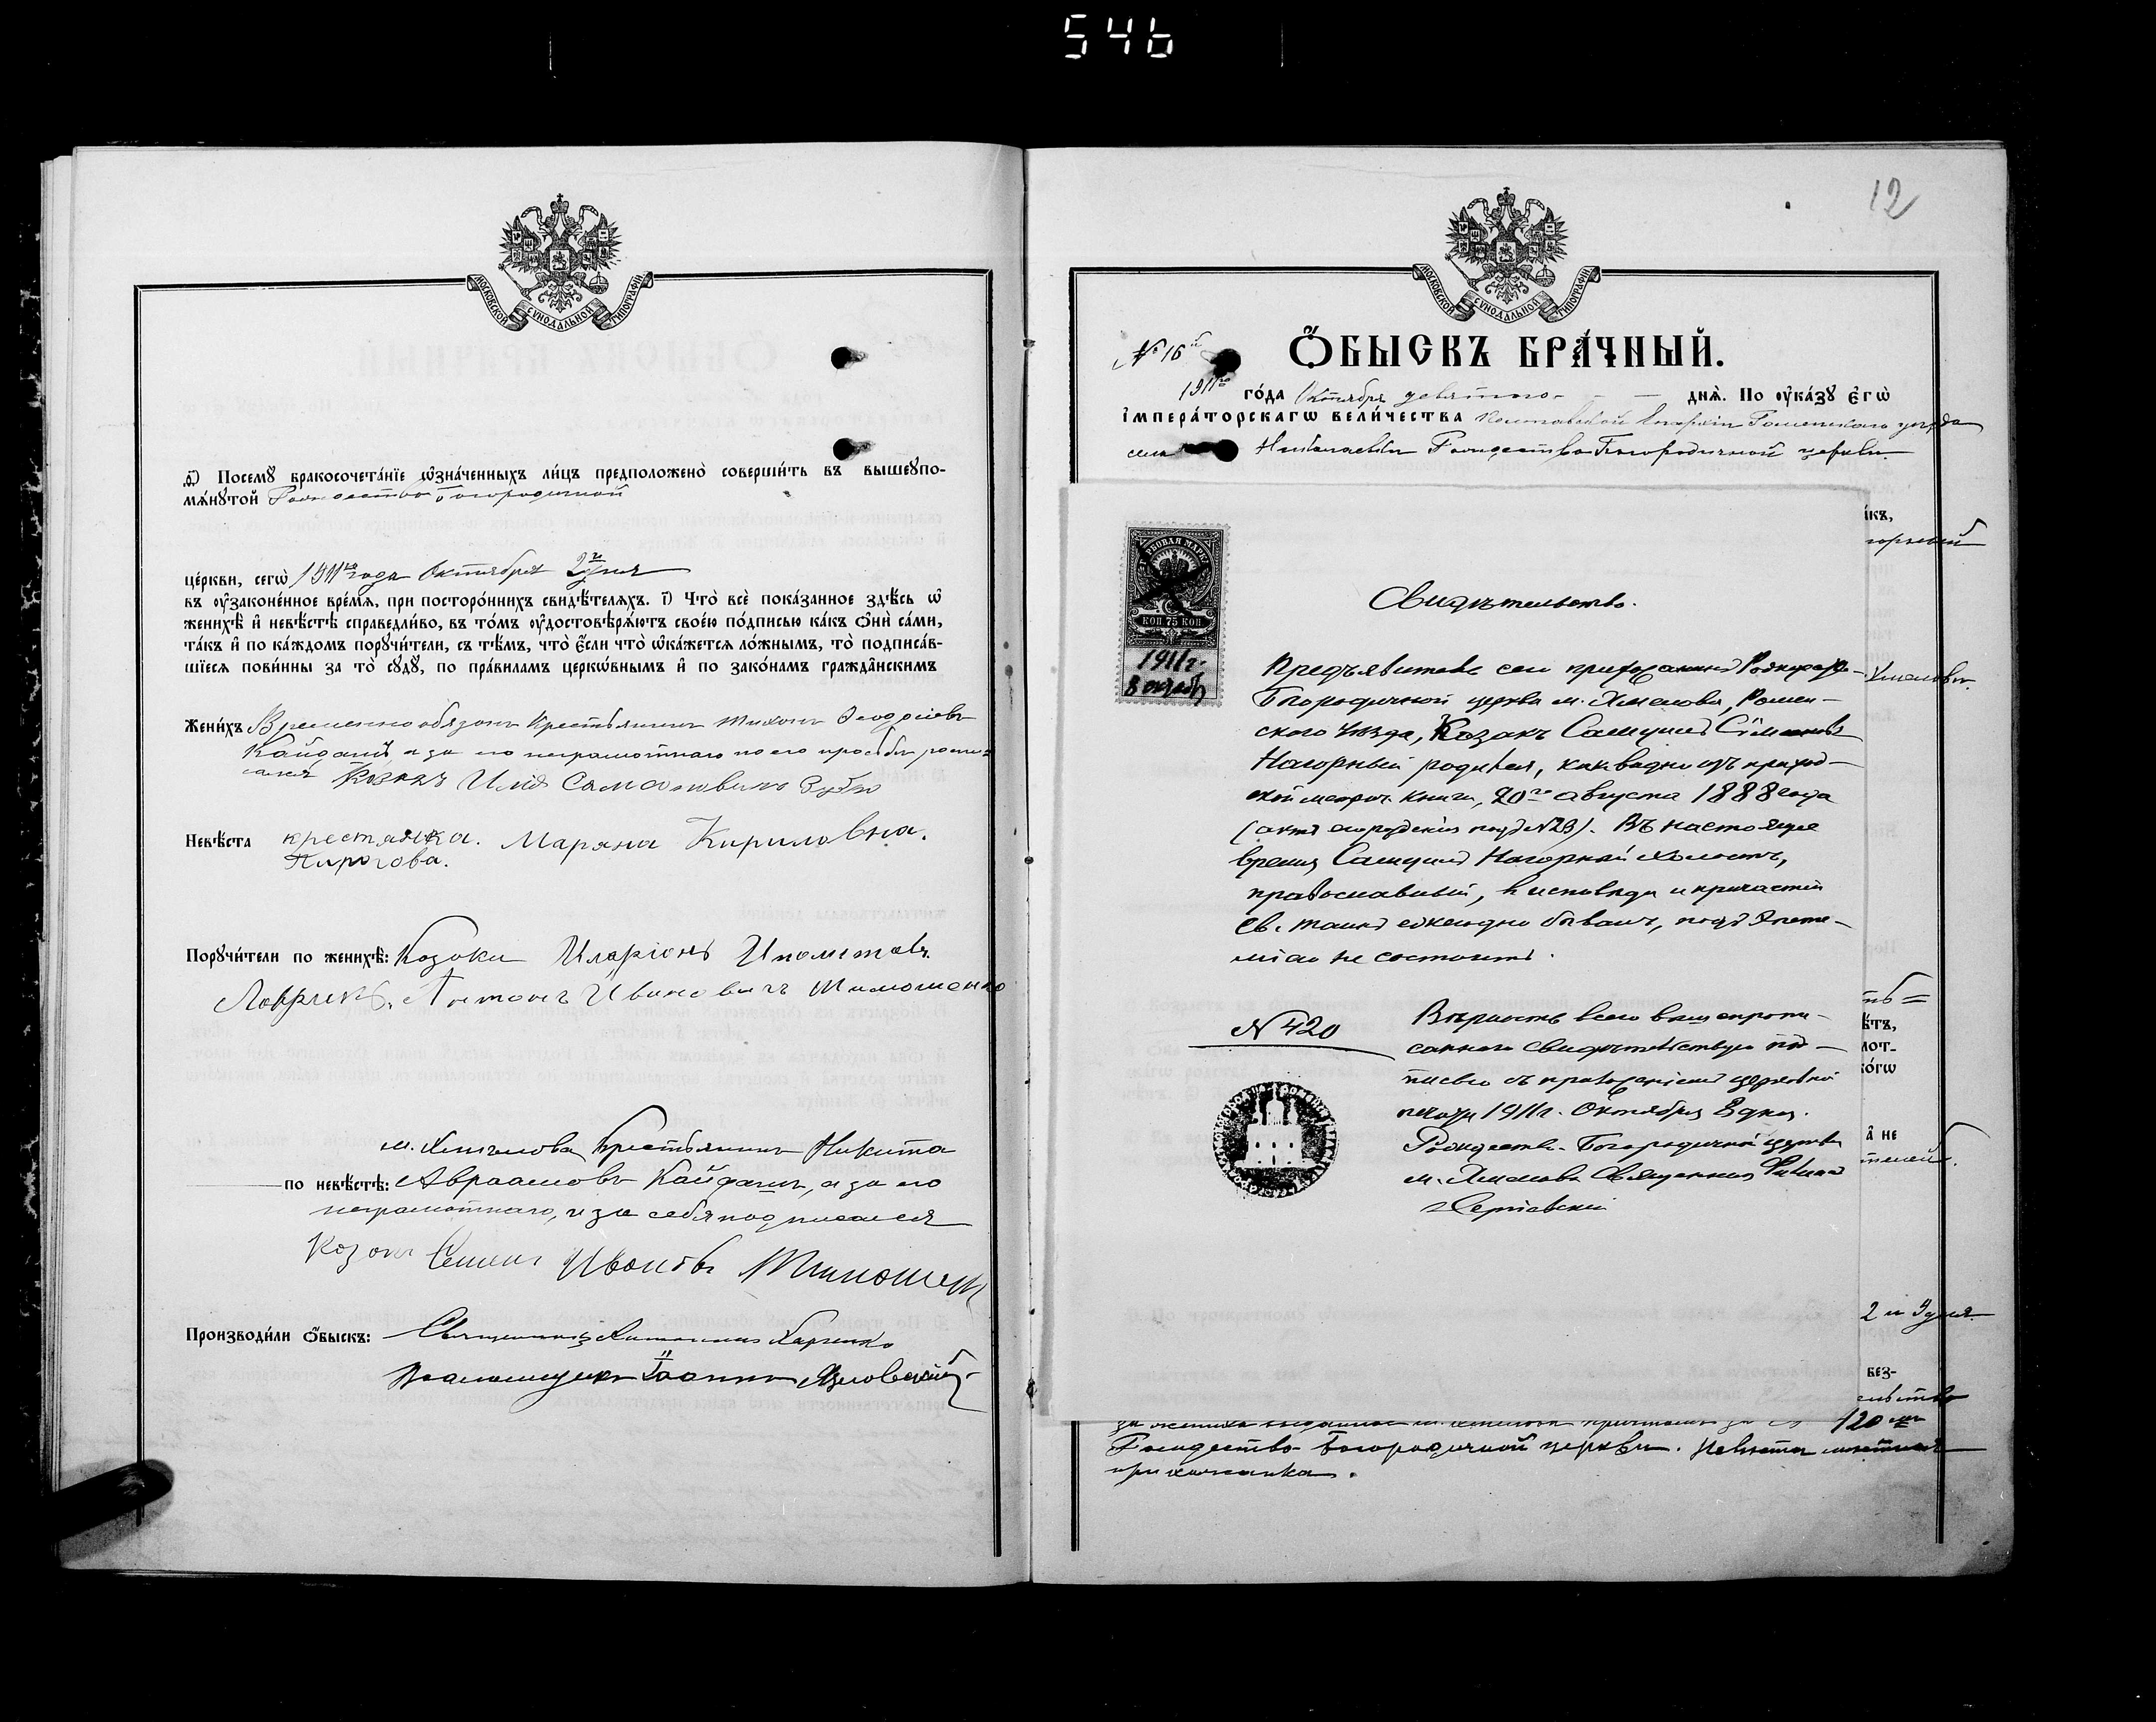 546
МОСКОВСКОЙ СѴНОДАЛЬНОЙ ТИПОГРАФІИ
ѳ҃) Посемꙋ̀ бракосочета́нїе ѡ҆зна́ченныхъ ли́цъ предположено̀ соверши́ть въ вышеꙋпо-
мѧ́нꙋтой Рождество Богородичной
це́ркви, сегѡ̀ 1911го года Октября 2го дня
въ ᲂу҆зако́ненное вре́мѧ, при посторо́ннихъ свидѣ́телѧхъ. і҃) Что̀ всѐ пока́занное здѣ́сь ѡ҆
женихѣ̀ и҆ невѣ́стѣ справедли́во, въ то́мъ ᲂу҆достовѣрѧ́ютъ свое́ю по́дписью ка́къ ѻ҆нѝ са́ми,
та́къ и҆ по ка́ждомъ порꙋчи́тели, съ тѣ́мъ, что̀ є҆́сли что̀ ѡ҆ка́жетсѧ ло́жнымъ, то̀ подписа́в-
шїесѧ пови́нны за то̀ сꙋдꙋ̀, по пра́виламъ церкѡ́внымъ и҆ по зако́намъ гражда̂нскимъ
Жени́хъ Временно обязан Крестьянин Тихон Феодосіевъ
Кайдашъ, а за его неграмотнаго по его просьбе роспи-
сался Козакъ Илія Самойловичъ Зубко
Невѣ́ста крестянка. Маряна Кириловна.
Пирогова.
Порꙋчи́тели по женихѣ̀: Козаки Иларіонъ Иполитовъ
Лаврикъ, Антонъ Ивановичъ Тимошенко
м. Хмелова, Крестьянинъ Никита
по невѣ́стѣ: Авраамовъ Кайдашъ, а за его
неграмотнаго, и за себя подписался
Козакъ Семенъ Ивановъ Тимошен
Производи́ли ѻ҆́быскъ: Священникъ Харченко
Псаломщикъ Іоаннъ
12
МОСКОВСКОЙ СѴНОДАЛЬНОЙ ТИПОГРАФІИ
№ 16й
Ѻ҆́БЫСКЪ БРА́ЧНЫЙ.
1911го го́да Октября девятого дня̀. По ᲂу҆ка́зꙋ є҆гѡ̀
і҆мпера́торскагѡ вели́чества Полтавской Епархіи Роменскаго уѣзда
села Николаевки Рождество Богородичной церкви
ГЕРБОВАЯ МАРКА
КОП. 75 КОП.
1911 г.
8 октября
Свидѣтельство.
Предъявитель сего прихожанинъ Рождество-
Богородичной церкви м. Хмелова, Ромен-
скаго Уѣзда, Козакъ Самуилъ Сѵмеоновъ
Нагорный родился, какъ видно изъ приход-
ской метрич. книги, 20го августа 1888 года
(актъ о рожденіи подъ №23). Въ настоящее
время Самуилъ Нагорный холостъ,
православный, на исповѣди и причастіи
Св. таинъ ежегодно бывалъ, подъ эпите-
міею не состоитъ.
№ 420
Вѣрность всего вышепропи-
саннаго свидѣтельствую под-
писью съ приложеніемъ церковной
печати 1911 г. Октября 8 дня.
Рождество-Богородичной церкви
м. Хмелова Священникъ
ікъ,
горный
Хмелова.
ѣтъ,
лот-
ко́гѡ
а҆̀ не
2 и 9 дня.
без-
120
Рождество-Богородичной церкви. Невѣста мѣстная
прихожанка.